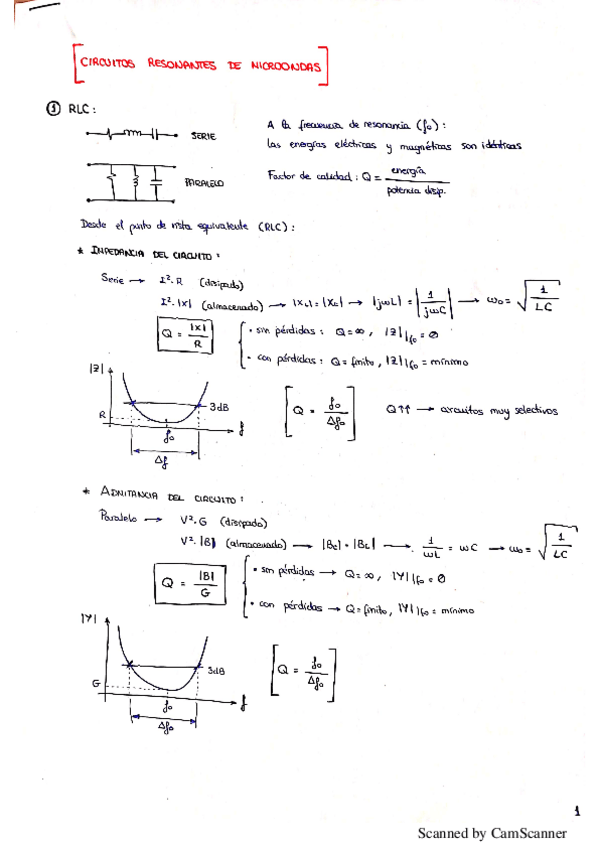 CIRCUITOS RESONANTES DE MICROONDAS
① RLC:
SERIE
PARALELO
A la frecuencia de resonancia (f₀):
las energías eléctricas y magnéticas son idénticas
Factor de calidad: Q = energía / potencia disip.
Desde el punto de vista equivalente (RLC):
* IMPEDANCIA DEL CIRCUITO:
Serie → I²·R (disipado)
I²·|X| (almacenado) → |X_L| = |X_C| → |jωL| = |1/jωC| → ω₀ = √(1/LC)
Q = |X|/R
• sin pérdidas: Q=∞, |Z||f₀ = 0
• con pérdidas: Q= finito, |Z||f₀ = mínimo
|Z|
R
3dB
f₀
f
Δf
Q = f₀/Δf₀
Q↑↑ → circuitos muy selectivos
* ADMITANCIA DEL CIRCUITO:
Paralelo → V²·G (disipado)
V²·|B| (almacenado) → |B_C| = |B_L| → 1/ωL = ωC → ω₀ = √(1/LC)
Q = |B|/G
• sin pérdidas → Q=∞, |Y||f₀ = 0
• con pérdidas → Q= finito, |Y||f₀ = mínimo
|Y|
G
3dB
f₀
f
Δf₀
Q = f₀/Δf₀
1
Scanned by CamScanner